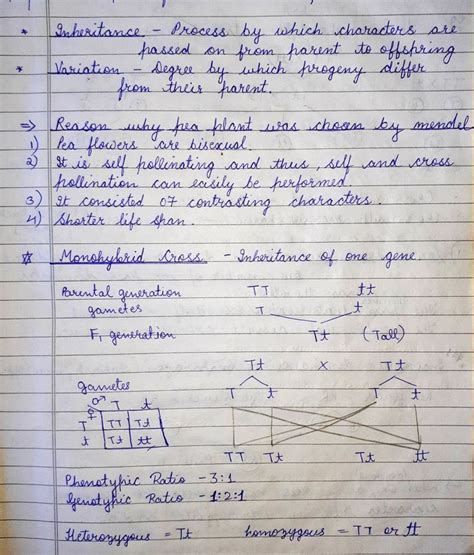 * Inheritance - Process by which characters are
passed on from parent to offspring
* Variation - Degree by which progeny differ
from their parent.
⇒ Reason why pea plant was chosen by mendel
1) Pea flowers are bisexual.
2) It is self pollinating and thus, self and cross
pollination can easily be performed
3) It consisted 07 contrasting characters.
4) Shorter life span.
☆ Monohybrid Cross - Inheritance of one gene.
Parental generation TT tt
gametes T t
F1 generation Tt (Tall)
Tt X Tt
gametes T t T t
♂ T t
♀
T TT Tt
t Tt tt
TT Tt Tt tt
Phenotypic Ratio - 3:1
Genotypic Ratio - 1:2:1
Heterozygous = Tt homozygous = TT or tt